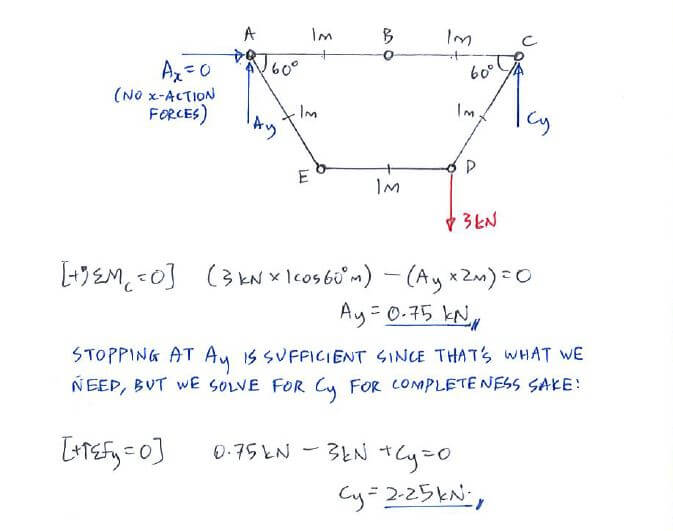 A 1m B 1m C
60° 60°
Ax=0
(NO x-ACTION
FORCES)
Ay 1m 1m Cy
E 1m D
3kN
[+↺ΣMc=0] (3kN×1cos60°m) - (Ay×2m)=0
Ay=0.75 kN,,
STOPPING AT Ay IS SUFFICIENT SINCE THAT'S WHAT WE
NEED, BUT WE SOLVE FOR Cy FOR COMPLETENESS SAKE:
[+↑ΣFy=0] 0.75kN - 3kN + Cy=0
Cy=2.25kN.,,